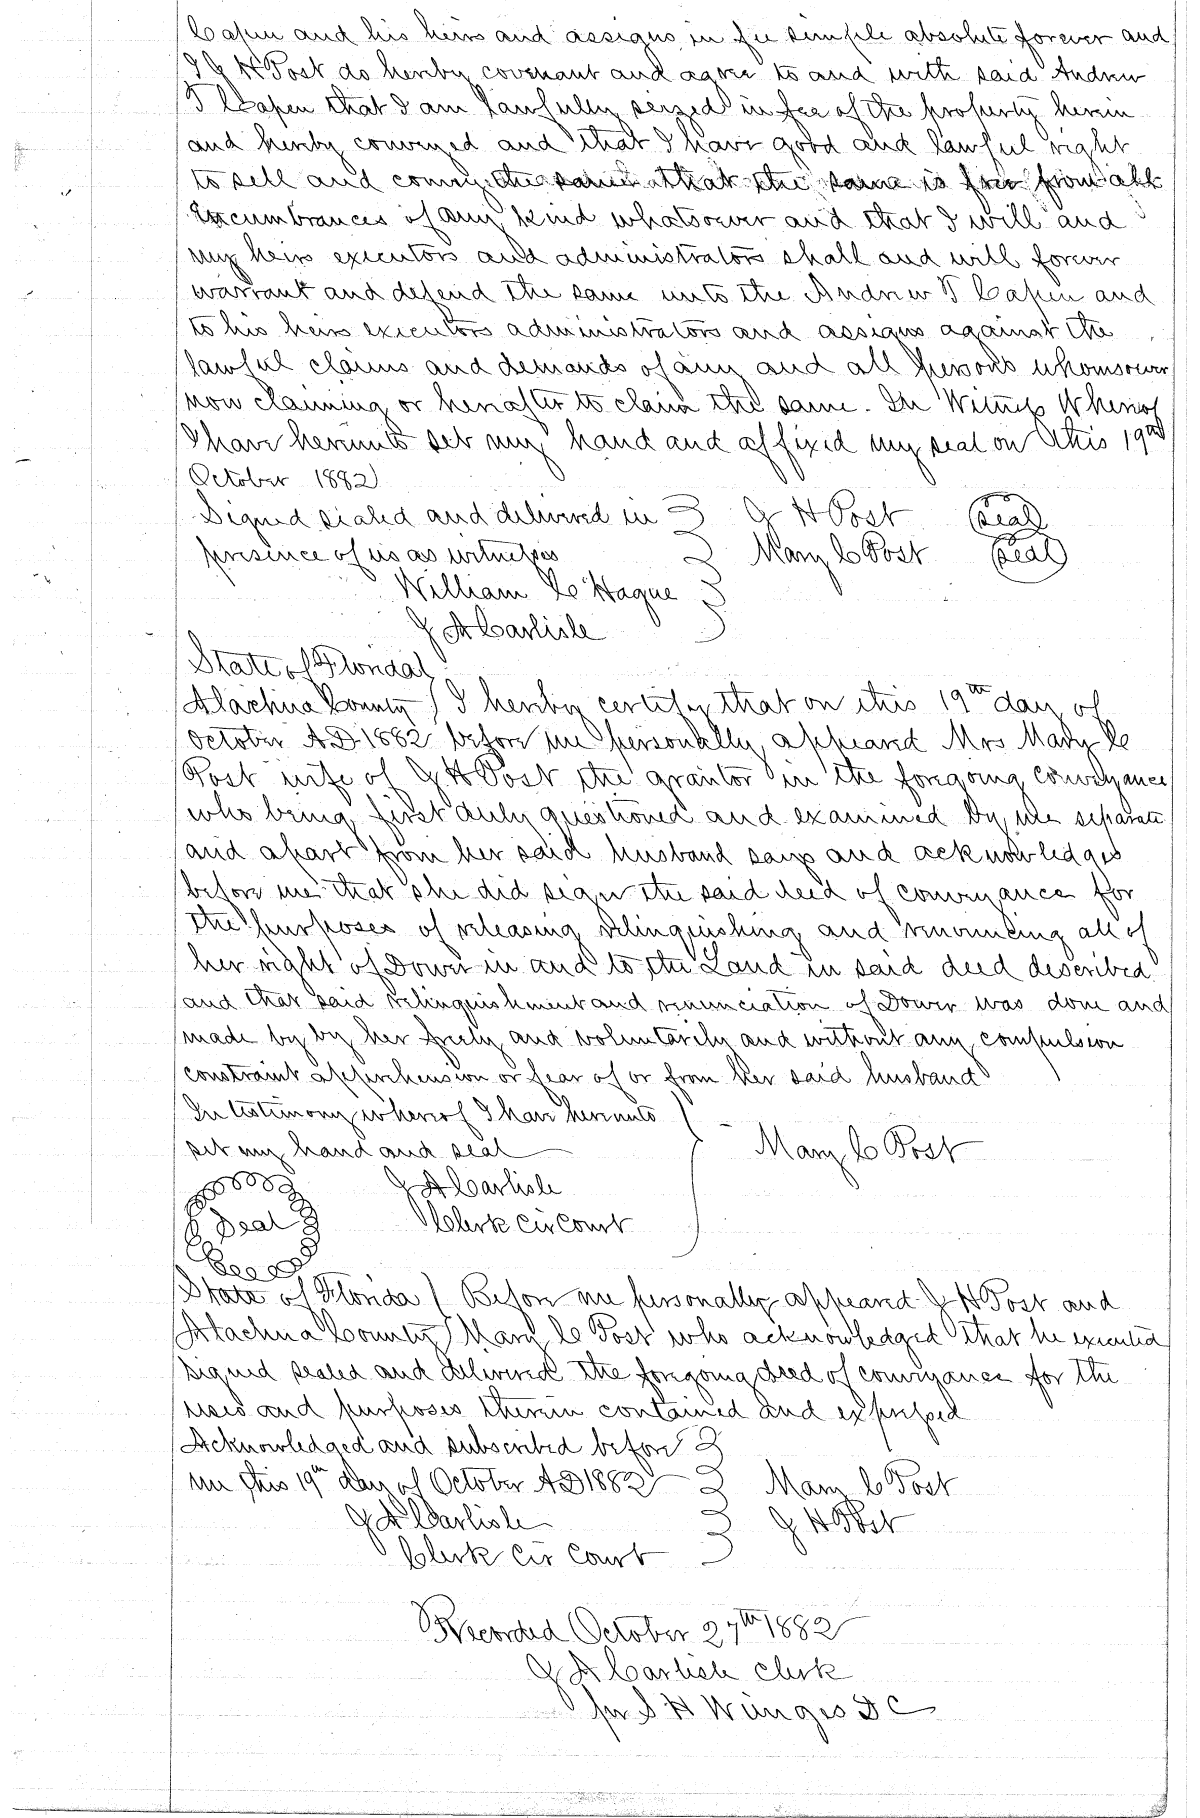 Capen and his heirs and assigns in fee simple absolute forever and
I G H Post do hereby covenant and agree to and with said Andrew
T Capen that I am lawfully seized in fee of the property herein
and hereby conveyed and that I have good and lawful right
to sell and convey the same that the same is free from all
Incumbrances of any kind whatsoever and that I will and
my heirs executors and administrators shall and will forever
warrant and defend the same unto the Andrew T Capen and
to his heirs executors administrators and assigns against the
lawful claims and demands of any and all persons whomsoever
now claiming or hereafter to claim the same. In Witness Whereof
I have hereunto set my hand and affixed my seal on this 19th
October 1882
Signed sealed and delivered in G H Post Seal
presence of us as witnesses Mary C Post Seal
William C Hague
J A Carlisle
State of Florida
Alachua County I hereby certify that on this 19th day of
October AD 1882 before me personally appeared Mrs Mary C
Post wife of G H Post the grantor in the foregoing conveyance
who being first duly questioned and examined by me separate
and apart from her said husband says and acknowledges
before me that she did sign the said deed of conveyance for
the purposes of releasing relinquishing and renouncing all of
her right of Dower in and to the Land in said deed described
and that said relinquishment and renunciation of Dower was done and
made by by her freely and voluntarily and without any compulsion
constraint apprehension or fear of or from her said husband
In testimony whereof I have hereunto
set my hand and seal Mary C Post
J A Carlisle
Seal Clerk Cir Court
State of Florida Before me personally appeared G H Post and
Alachua County Mary C Post who acknowledged that he executed
signed sealed and delivered the foregoing deed of conveyance for the
uses and purposes therein contained and expressed
Acknowledged and subscribed before
me this 19th day of October AD 1882 Mary C Post
J A Carlisle G H Post
Clerk Cir Court
Recorded October 27th 1882
J A Carlisle Clerk
per S H Wienges D C